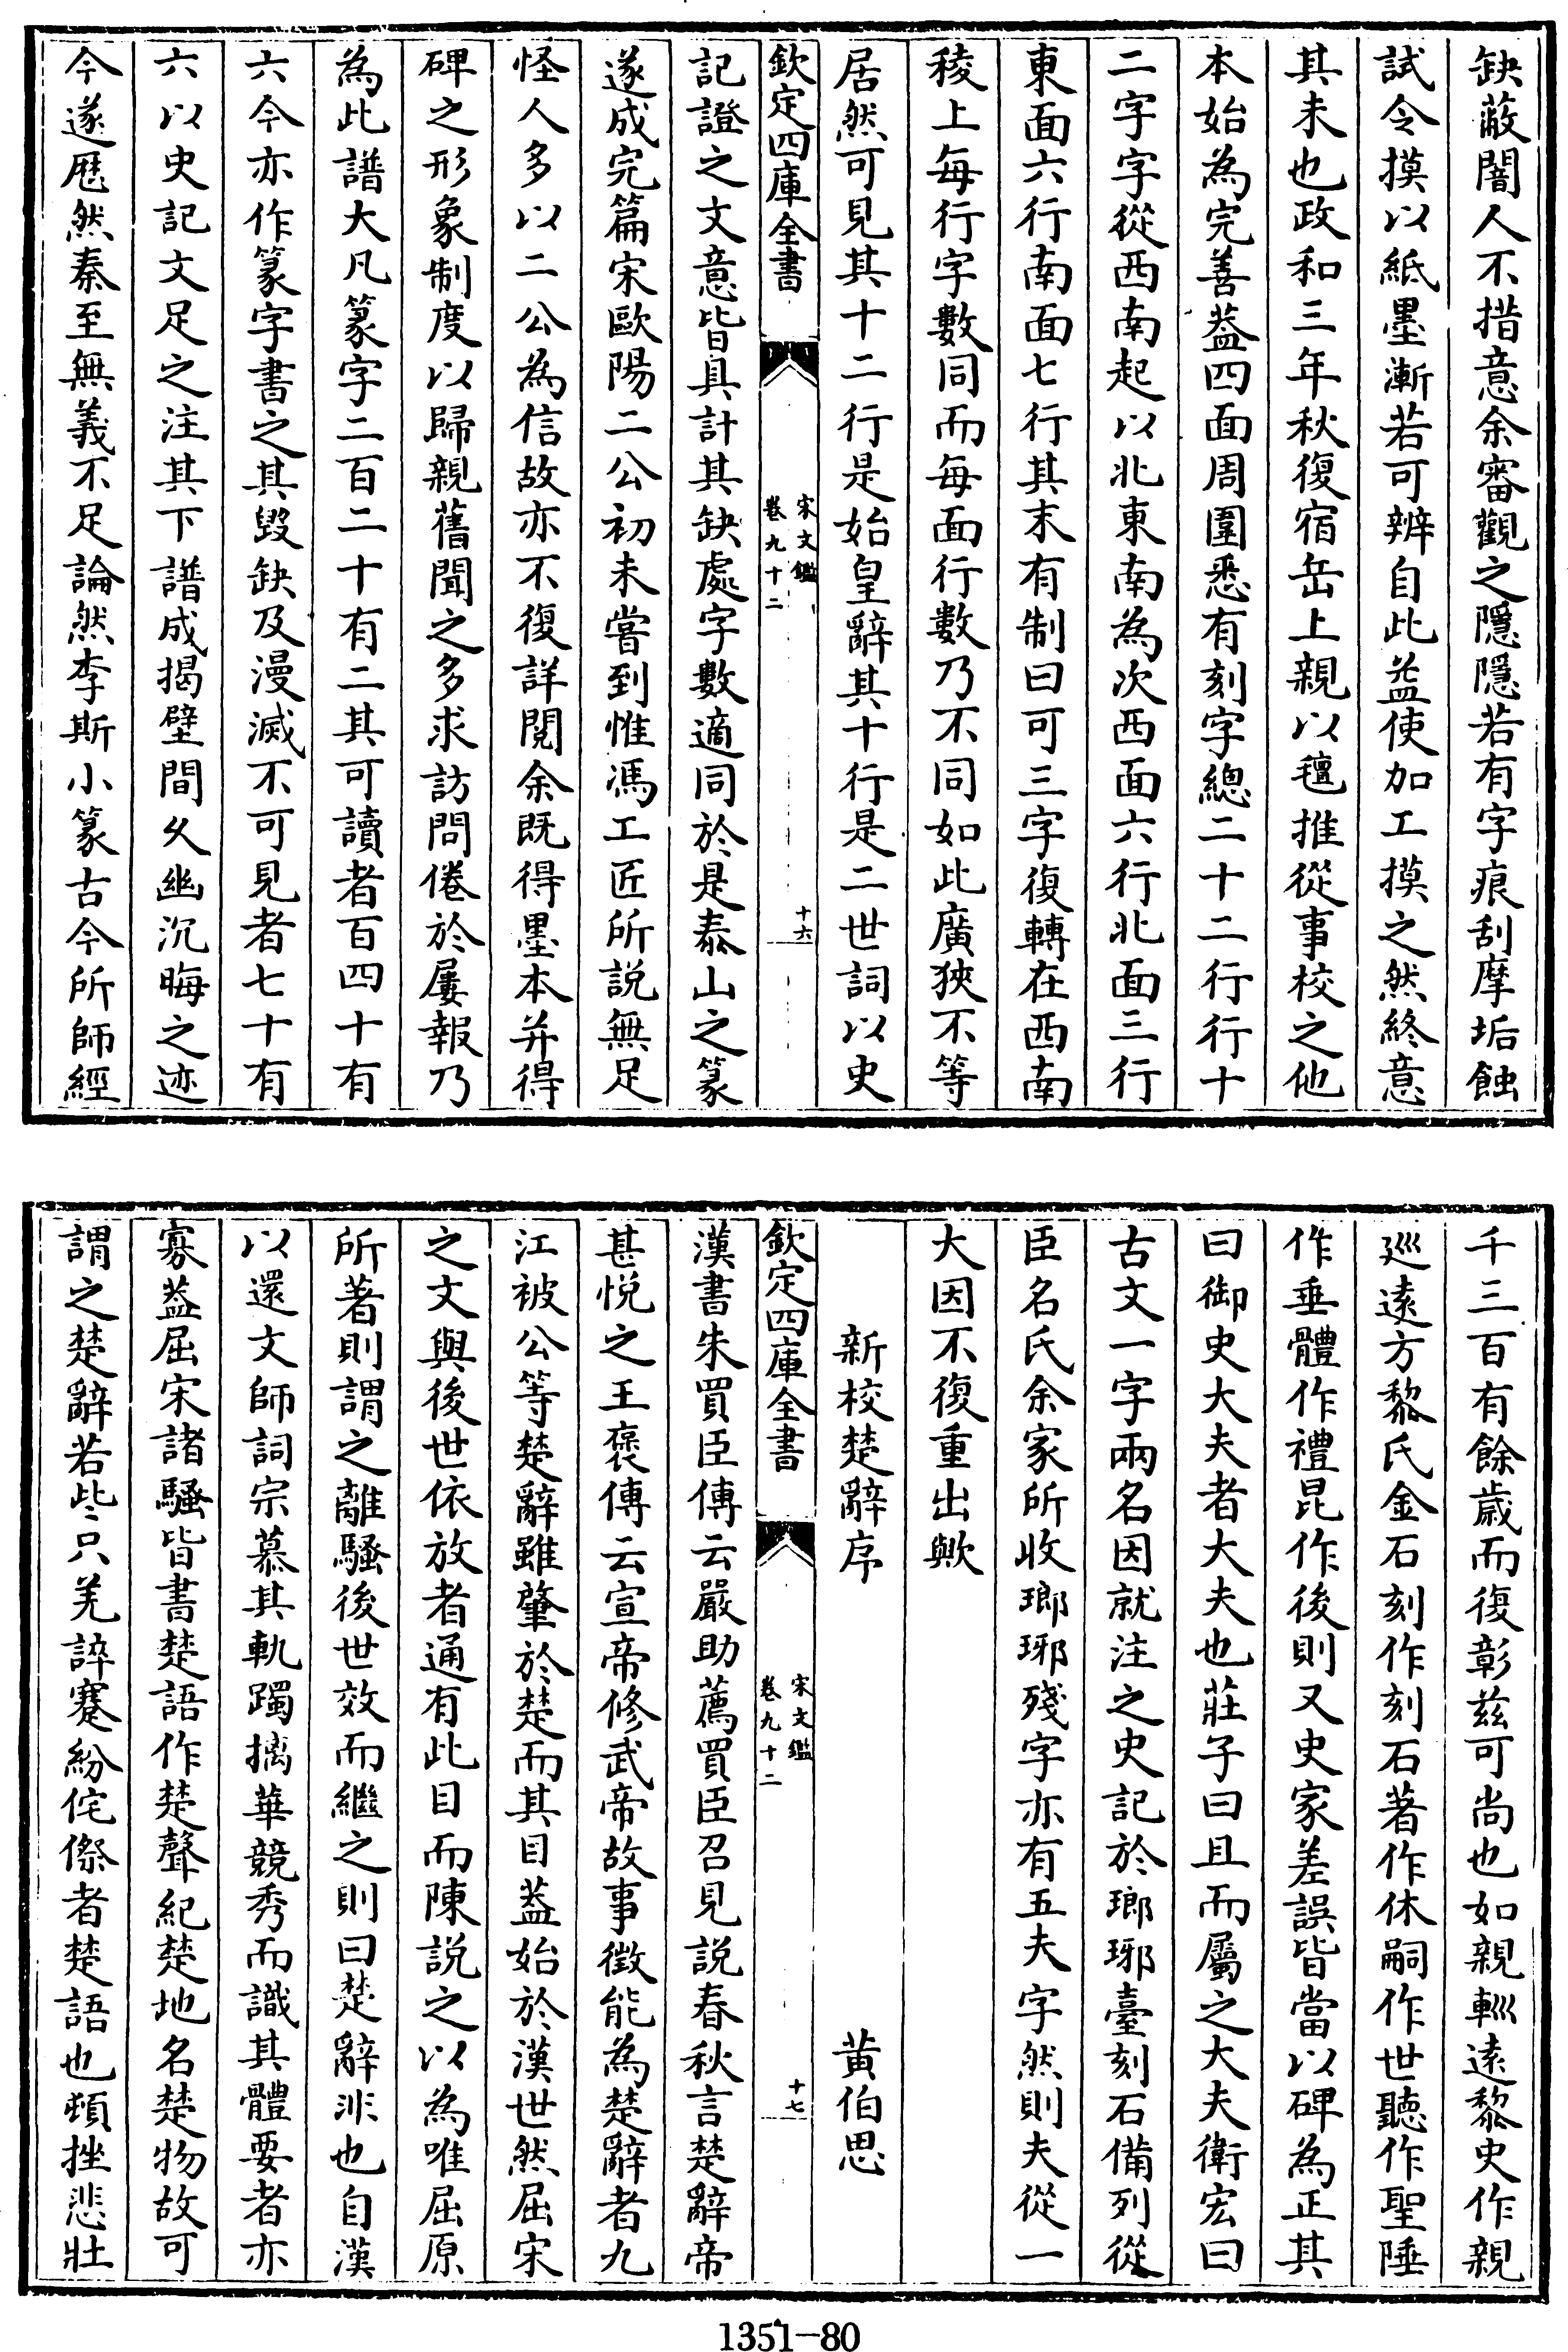 缺蔽闇人不措意余審觀之隱隱若有字痕刮摩垢蝕
試令摸以紙墨漸若可辨自此益使加工摸之然終意
其未也政和三年秋復宿岳上親以氊推從事校之他
本始為完善葢四面周圍悉有刻字總二十二行行十
二字字從西南起以北東南為次西面六行北面三行
東面六行南面七行其末有制曰可三字復轉在西南
稜上每行字數同而每面行數乃不同如此廣狹不等
居然可見其十二行是始皇辭其十行是二世詞以史
欽定四庫全書
宋文鑑
卷九十二
十六
記證之文意皆具計其缺處字數適同於是泰山之篆
遂成完篇宋歐陽二公初未嘗到惟馮工匠所說無足
怪人多以二公為信故亦不復詳閱余既得墨本并得
碑之形象制度以歸親舊聞之多求訪問倦於屢報乃
為此譜大凡篆字二百二十有二其可讀者百四十有
六今亦作篆字書之其毀缺及漫滅不可見者七十有
六以史記文足之注其下譜成揭壁間乆幽沉晦之迹
今遂厯然秦至無義不足論然李斯小篆古今所師經
千三百有餘歲而復彰兹可尚也如親輙遠黎史作親
廵遠方黎氏金石刻作刻石著作休嗣作世聽作聖陲
作垂體作禮昆作後則又史家差誤皆當以碑為正其
曰御史大夫者大夫也莊子曰且而屬之大夫衛宏曰
古文一字兩名因就注之史記於瑯琊臺刻石備列從
臣名氏余家所收瑯琊殘字亦有五夫字然則夫從一
大因不復重出歟
新校楚辭序　　黄伯思
欽定四庫全書
宋文鑑
卷九十二
十七
漢書朱買臣傳云嚴助薦買臣召見說春秋言楚辭帝
甚悅之王褒傳云宣帝修武帝故事徵能為楚辭者九
江被公等楚辭雖肇於楚而其目葢始於漢世然屈宋
之文與後世依放者通有此目而陳說之以為唯屈原
所著則謂之離騷後世效而繼之則曰楚辭非也自漢
以還文師詞宗慕其軌躅摛華競秀而識其體要者亦
寡葢屈宋諸騷皆書楚語作楚聲紀楚地名楚物故可
謂之楚辭若些只羌誶蹇紛侘傺者楚語也頓挫悲壯
1351-80